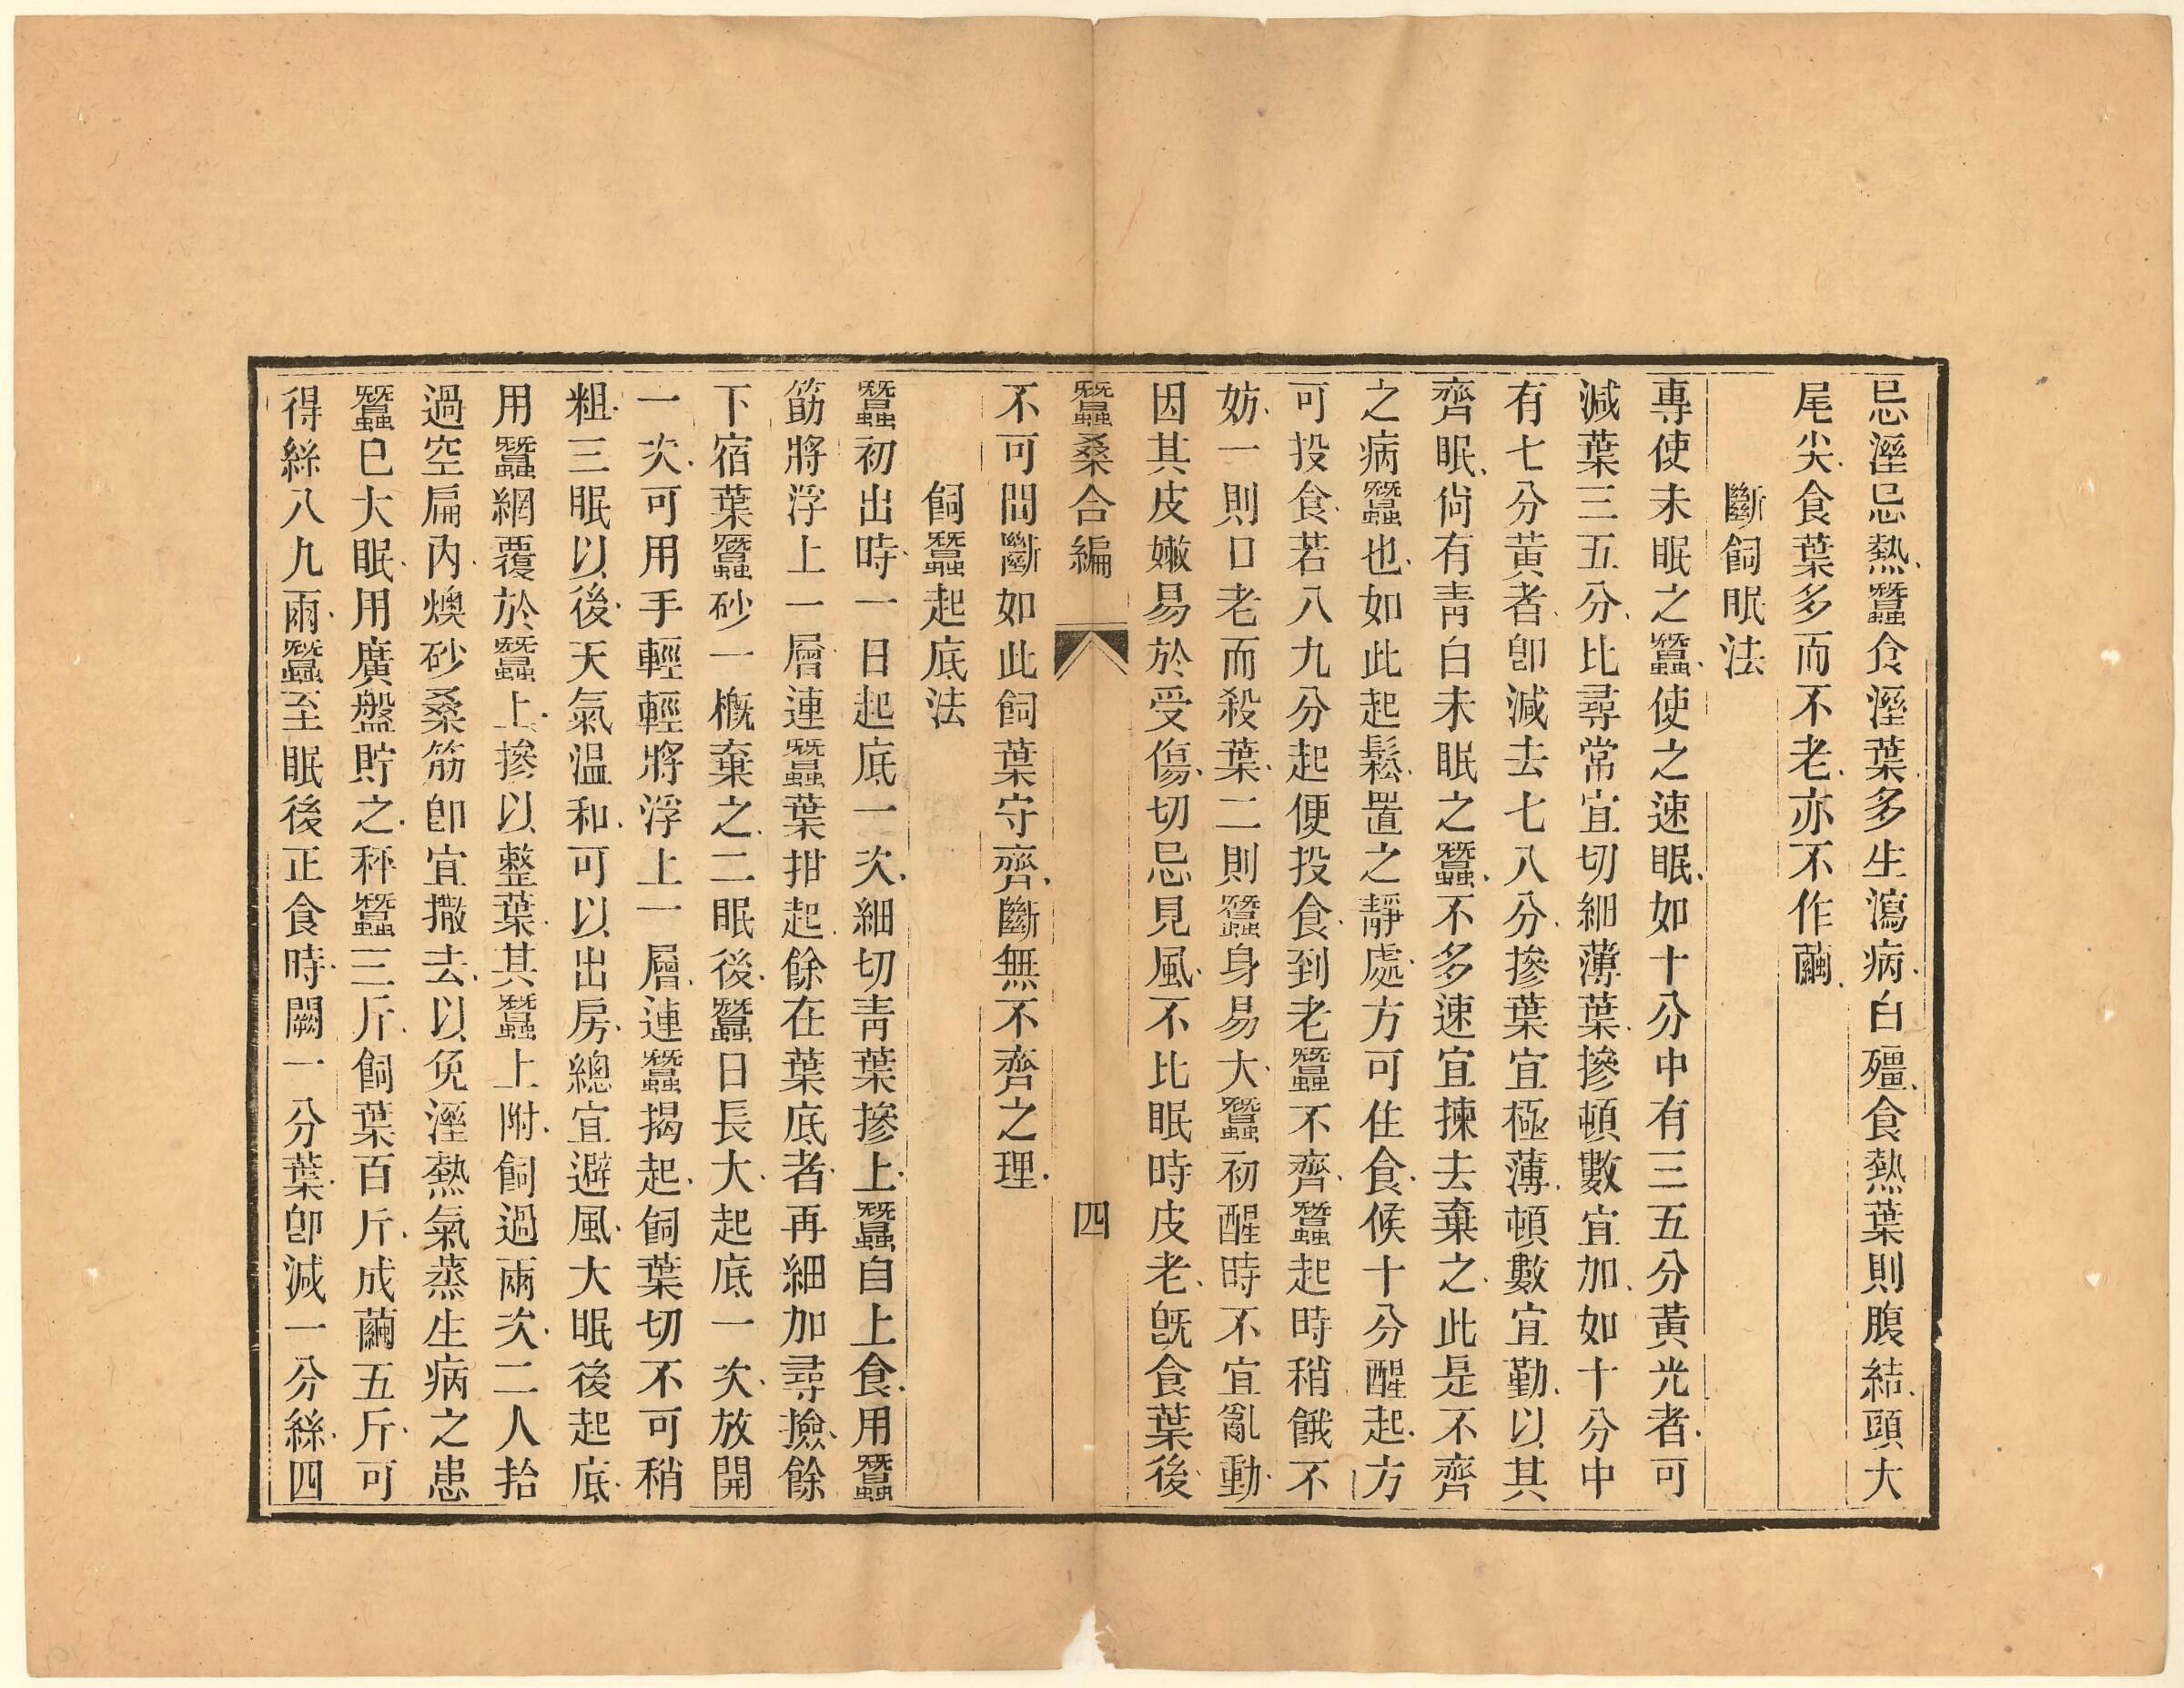 忌溼忌熱蠶食溼葉多生瀉病白殭食熱葉則腹結頭大
尾尖食葉多而不老亦不作繭
斷飼眠法
專使未眠之蠶使之速眠如十分中有三五分黃光者可
減葉三五分比尋常宜切細薄葉摻頓數宜加如十分中
有七分黃者卽減去七八分摻葉宜極薄頓數宜勤以其
齊眠尙有靑白未眠之蠶不多速宜揀去棄之此是不齊
之病蠶也如此起鬆置之靜處方可住食候十分醒起方
可投食若八九分起便投食到老蠶不齊蠶起時稍餓不
妨一則口老而殺葉二則蠶身易大蠶初醒時不宜亂動
因其皮嫩易於受傷切忌見風不比眠時皮老旣食葉後
蠶桑合編 四
不可間斷如此飼葉守齊斷無不齊之理
飼蠶起底法
蠶初出時一日起底一次細切靑葉摻上蠶自上食用蠶
筯將浮上一層連蠶葉拑起餘在葉底者再細加尋撿餘
下宿葉蠶砂一槪棄之二眠後蠶日長大起底一次放開
一次可用手輕輕將浮上一層連蠶揭起飼葉切不可稍
粗三眠以後天氣温和可以出房總宜避風大眠後起底
用蠶網覆於蠶上摻以整葉其蠶上附飼過兩次二人抬
過空扁內燠砂桑筋卽宜撒去以免溼熱氣蒸生病之患
蠶巳大眠用廣盤貯之秤蠶三斤飼葉百斤成繭五斤可
得絲八九兩蠶至眠後正食時闕一分葉卽減一分絲四